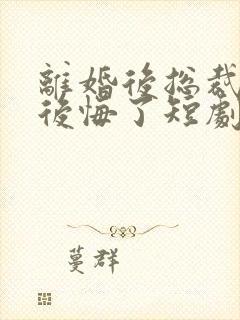 離婚後總裁
後悔了短劇
蔓群